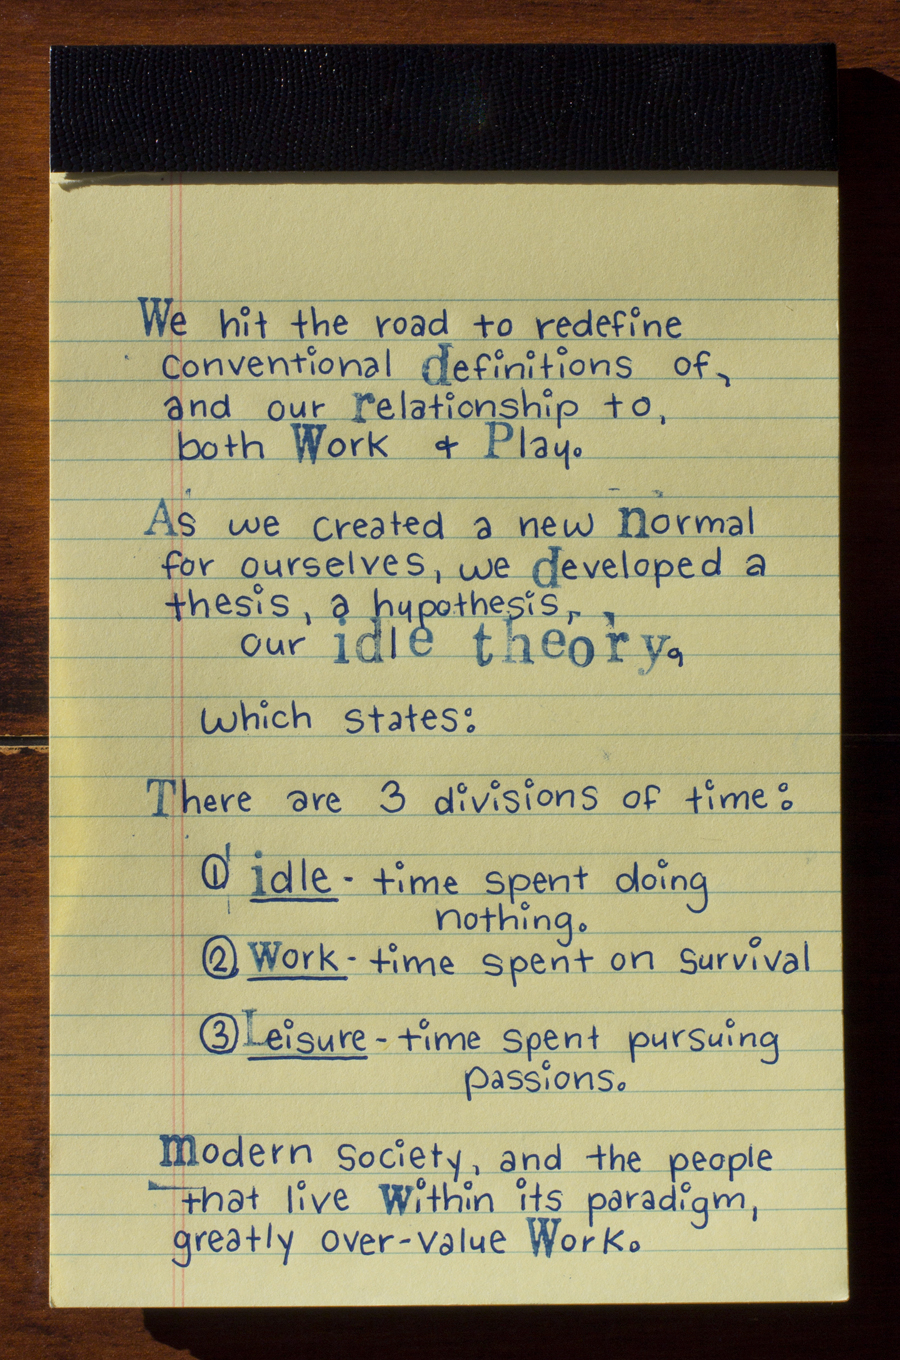 We hit the road to redefine
conventional definitions of,
and our relationship to,
both Work & Play.
As we created a new normal
for ourselves, we developed a
thesis, a hypothesis,
our idle theory,
which states:
There are 3 divisions of time:
① idle - time spent doing
nothing.
② Work - time spent on survival
③ Leisure - time spent pursuing
passions.
modern society, and the people
that live within its paradigm,
greatly over-value Work.